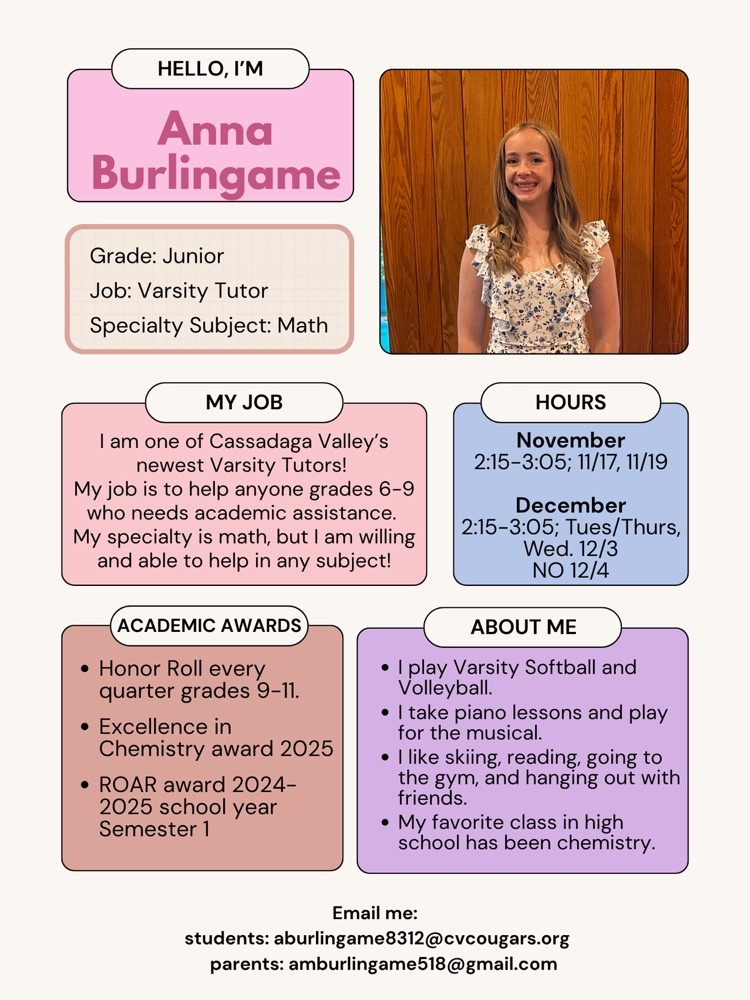 HELLO, I'M
Anna
Burlingame
Grade: Junior
Job: Varsity Tutor
Specialty Subject: Math
MY JOB
I am one of Cassadaga Valley's
newest Varsity Tutors!
My job is to help anyone grades 6-9
who needs academic assistance.
My specialty is math, but I am willing
and able to help in any subject!
HOURS
November
2:15-3:05; 11/17, 11/19
December
2:15-3:05; Tues/Thurs,
Wed. 12/3
NO 12/4
ACADEMIC AWARDS
• Honor Roll every
quarter grades 9-11.
• Excellence in
Chemistry award 2025
• ROAR award 2024-
2025 school year
Semester 1
ABOUT ME
• I play Varsity Softball and
Volleyball.
• I take piano lessons and play
for the musical.
• I like skiing, reading, going to
the gym, and hanging out with
friends.
• My favorite class in high
school has been chemistry.
Email me:
students: aburlingame8312@cvcougars.org
parents: amburlingame518@gmail.com